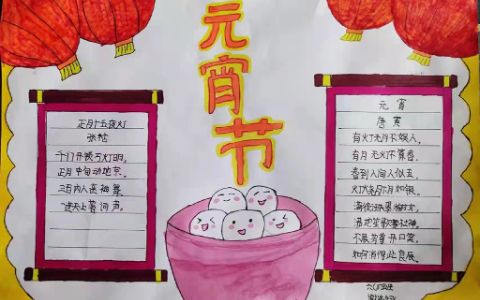 元宵节
正月十五夜灯
张祜
千门开锁万灯明,
正月中旬动地京。
三百内人连袖舞,
一进天上著词声。
元宵
唐寅
有灯无月不娱人,
有月无灯不算春。
春到人间人似玉,
灯烧月下月如银。
满街珠翠游村女,
沸地笙歌赛社神。
不展芳尊开口笑,
如何消得此良辰。